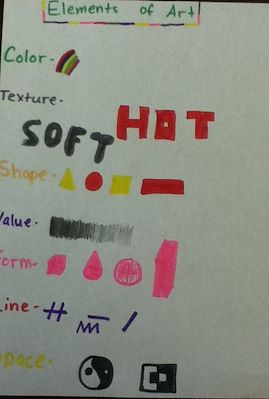 Elements of Art
Color-
Texture-
SOFT HOT
Shape-
Value-
Form-
Line-
Space-